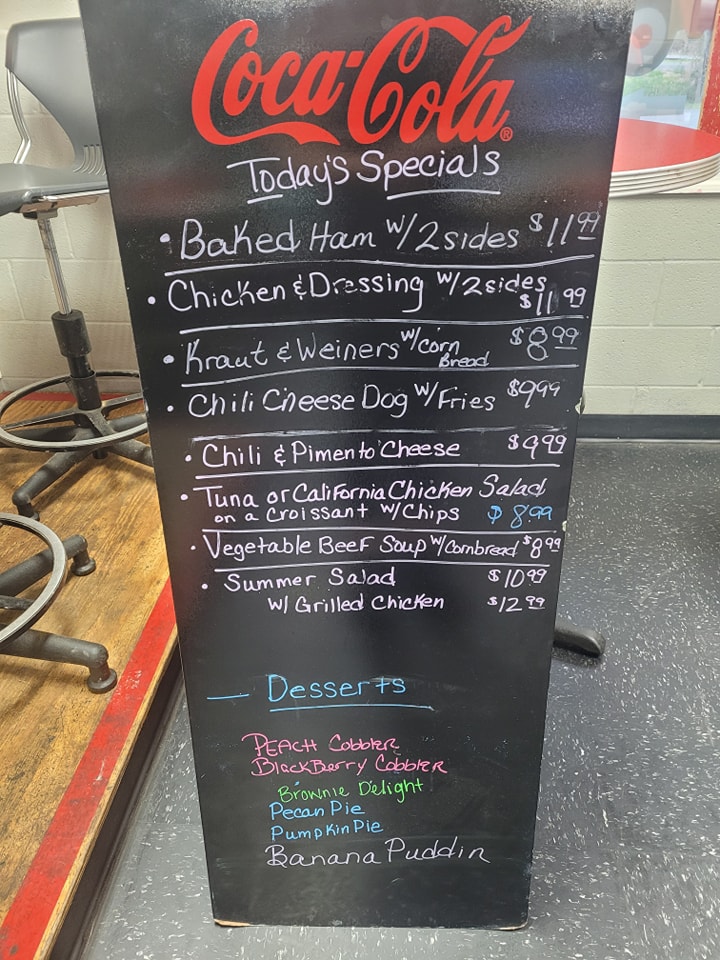 Coca-Cola®
Today's Specials
• Baked Ham w/2 sides $11.99
• Chicken & Dressing w/2 sides
$11.99
• Kraut & Weiners w/corn $8.99
Bread
• Chili Cheese Dog w/Fries $9.99
• Chili & Pimento Cheese $9.99
• Tuna or California Chicken Salad
on a Croissant w/ Chips $8.99
• Vegetable Beef Soup w/Cornbread $8.99
• Summer Salad $10.99
w/ Grilled Chicken $12.99
Desserts
Peach Cobbler
BlackBerry Cobbler
Brownie Delight
Pecan Pie
Pumpkin Pie
Banana Puddin